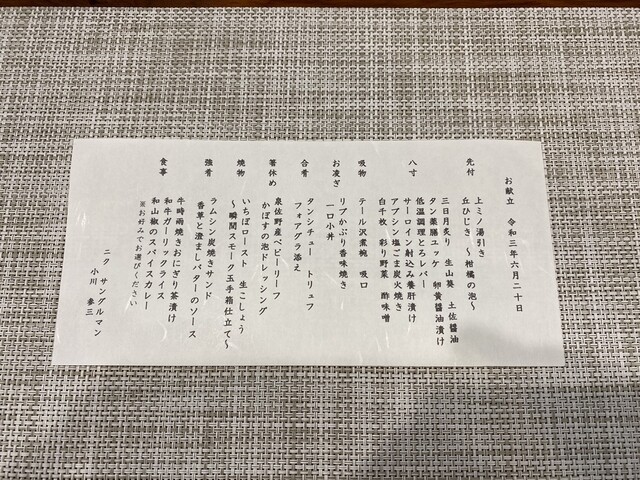 お献立　令和三年六月二十日
先付
上ミノ湯引き
丘ひじき　～柑橘の泡～
八寸
三日月炙り　生山葵　土佐醤油
タン薬膳ユッケ　卵黄醤油漬け
低温調理とろレバー
サーロイン射込み養肝漬け
アブシン塩ごま炭火焼き
白千枚　彩り野菜　酢味噌
吸物
テール沢煮椀　吸口
お凌ぎ
リブかぶり香味焼き
一口小丼
合肴
タンシチュー　トリュフ
フォアグラ添え
箸休め
泉佐野産ベビーリーフ
かぼすの泡ドレッシング
焼物
いちぼロースト　生こしょう
～瞬間スモーク玉手箱仕立て～
強肴
ラムシン炭焼きサンド
香草と澄ましバターのソース
食事
牛時雨焼きおにぎり茶漬け
和牛ガーリックライス
和山椒のスパイスカレー
※お好みでお選びください
ニク　サングルマン
小川　参三